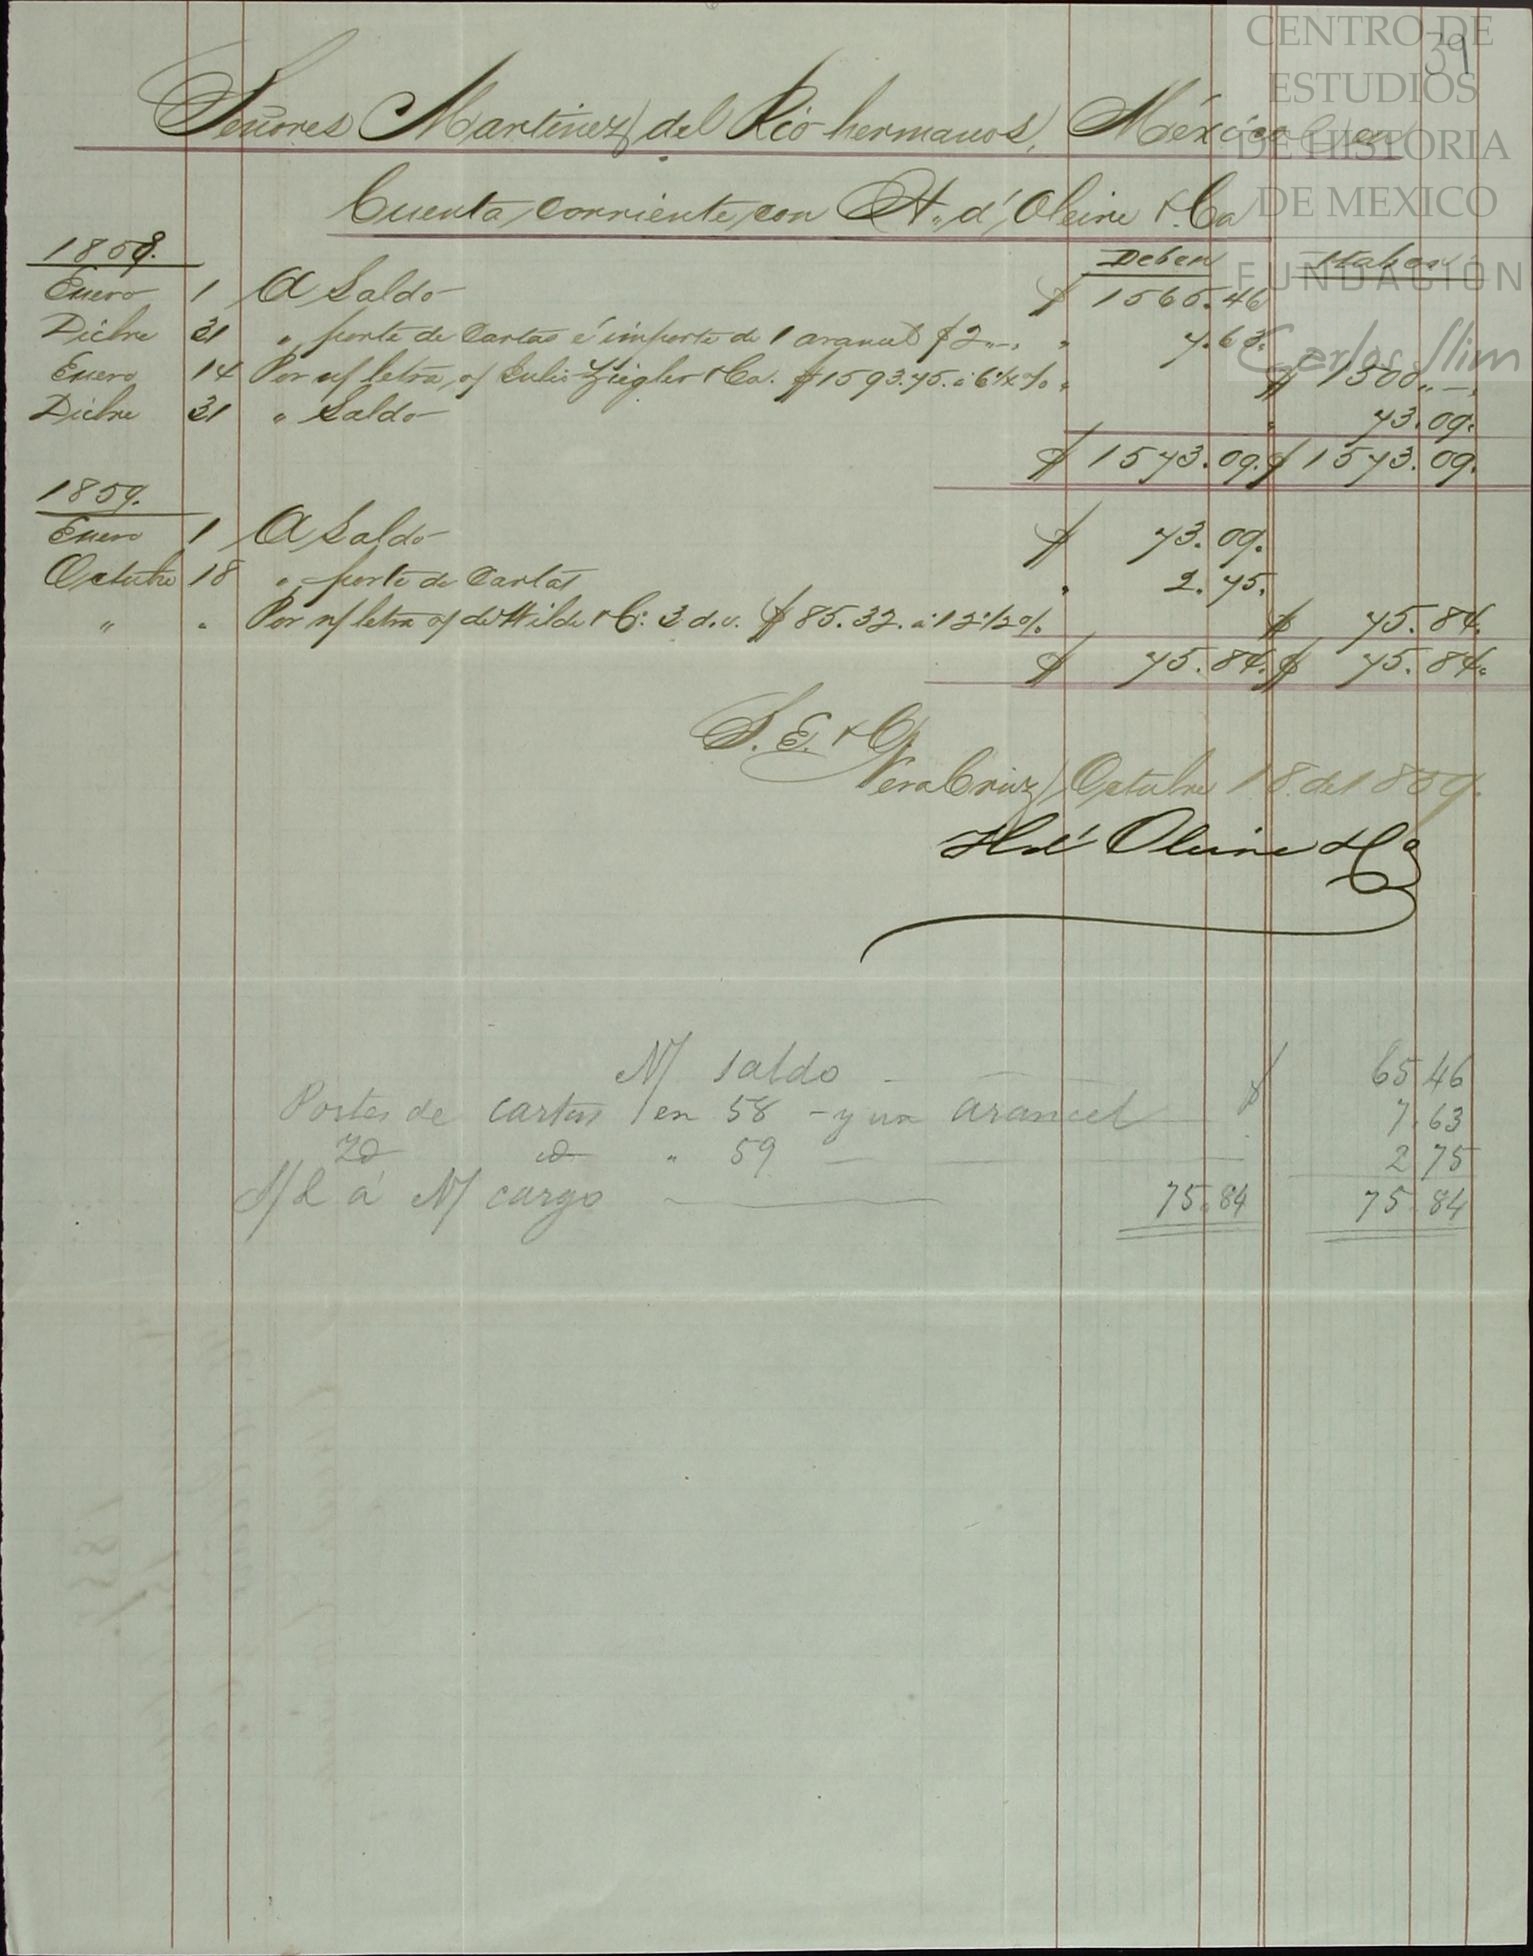 39
CENTRO DE
ESTUDIOS
DE HISTORIA
DE MEXICO
FUNDACIÓN
Carlos Slim
Señores Martinez del Rio hermanos, México en
Cuenta corriente con H. d'Oleire & Ca
1858. Deben Haben
Enero 1 A Saldo $ 1565.46
Dicbre 31 " porte de Cartas é importe de 1 arancel $2.—. " 7.63.
Enero 14 Por n/ letra, o/ Julio Ziegler & Ca. $1593.75. á 6¼% $ 1500.—.
Dicbre 31 " Saldo " 73.09.
$ 1573.09. $ 1573.09.
1859.
Enero 1 A Saldo $ 73.09.
Octubre 18 " porte de Cartas " 2.75.
" " Por n/ letra o/ de Wilde & C. 3 d.v. $ 85.32. á 12½% $ 75.84.
$ 75.84. $ 75.84.
S. E. & O.
Vera Cruz, Octubre 18. de 1859.
H d'Oleire & Ca
N/ saldo — $ 65 46
Portes de cartas en 58 – y un arancel 7.63
Id id " 59 — 2 75
S/L á N/ cargo — 75.84 75.84